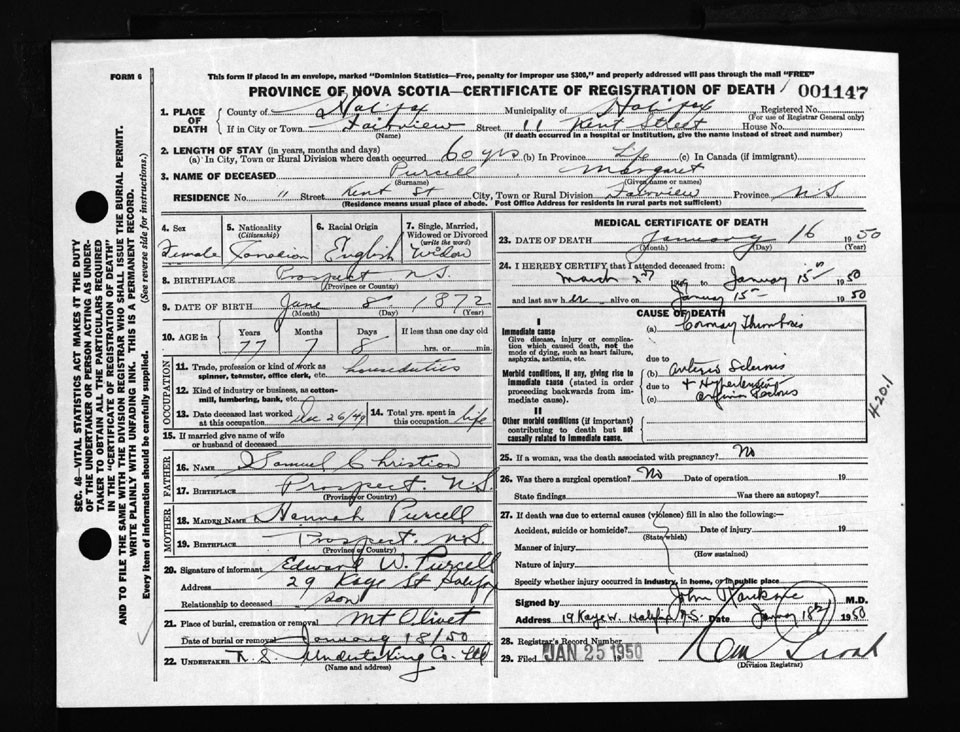 FORM 6
This form if placed in an envelope, marked "Dominion Statistics—Free, penalty for improper use $300," and properly addressed will pass through the mail "FREE"
PROVINCE OF NOVA SCOTIA—CERTIFICATE OF REGISTRATION OF DEATH 001147
1. PLACE OF DEATH County of Halifax Municipality of Halifax Registered No.
(For use of Registrar General only)
If in City or Town Fairview Street 11 Kent Street House No.
(Name) (If death occurred in a hospital or institution, give the name instead of street and number)
2. LENGTH OF STAY (in years, months and days)
(a) In City, Town or Rural Division where death occurred 60 yrs (b) In Province Life (c) In Canada (if immigrant)
3. NAME OF DECEASED Purcell, Margaret
(Surname) (Given name or names)
RESIDENCE No. " Street Kent St City, Town or Rural Division Fairview Province N.S
(Residence means usual place of abode. Post Office Address for residents in rural parts not sufficient)
4. Sex Female
5. Nationality (Citizenship) Canadian
6. Racial Origin English
7. Single, Married, Widowed or Divorced (write the word) Widow
8. BIRTHPLACE Prospect N.S.
(Province or Country)
9. DATE OF BIRTH June 8 1872
(Month) (Day) (Year)
10. AGE in Years Months Days If less than one day old
77 7 8 hrs. or min.
OCCUPATION
11. Trade, profession or kind of work as spinner, teamster, office clerk, etc. houseduties
12. Kind of industry or business, as cotton-mill, lumbering, bank, etc.
13. Date deceased last worked at this occupation Dec 26/49
14. Total yrs. spent in this occupation Life
15. If married give name of wife or husband of deceased
FATHER
16. NAME Samuel Christian
17. BIRTHPLACE Prospect. N.S.
(Province or Country)
MOTHER
18. MAIDEN NAME Hannah Purcell
19. BIRTHPLACE Prospect. N.S
(Province or Country)
20. Signature of informant Edward W. Purcell
Address 29 Kaye St Halifax
Relationship to deceased son
21. Place of burial, cremation or removal Mt Olivet
Date of burial or removal January 18/50
22. UNDERTAKER N.S. Undertaking Co. Ltd
(Name and address)
MEDICAL CERTIFICATE OF DEATH
23. DATE OF DEATH January 16 1950
(Month) (Day) (Year)
24. I HEREBY CERTIFY that I attended deceased from:
March 2nd 1949 to January 15th 1950
and last saw her alive on January 15th 1950
CAUSE OF DEATH
I
Immediate cause
Give disease, injury or complication which caused death, not the mode of dying, such as heart failure, asphyxia, asthenia, etc.
(a) Coronary Thrombosis
due to
Morbid conditions, if any, giving rise to immediate cause (stated in order proceeding backwards from immediate cause).
(b) Arterio Sclerosis
due to + Hypertension
(c) Angina Pectoris
II
Other morbid conditions (if important) contributing to death but not causally related to immediate cause.
420.1
25. If a woman, was the death associated with pregnancy? No
26. Was there a surgical operation? No Date of operation 19
State findings Was there an autopsy?
27. If death was due to external causes (violence) fill in also the following:—
Accident, suicide or homicide? Date of injury 19
(State which)
Manner of injury
(How sustained)
Nature of injury
Specify whether injury occurred in industry, in home, or in public place
Signed by John M.D.
Address 19 Kaye W. Halifax N.S. Date January 18th 1950
28. Registrar's Record Number
29. Filed JAN 25 1950
(Division Registrar)
SEC. 46—VITAL STATISTICS ACT MAKES IT THE DUTY
OF THE UNDERTAKER OR PERSON ACTING AS UNDER-
TAKER TO OBTAIN ALL THE PARTICULARS REQUIRED
IN THE "CERTIFICATE OF REGISTRATION OF DEATH"
AND TO FILE THE SAME WITH THE DIVISION REGISTRAR WHO SHALL ISSUE THE BURIAL PERMIT.
WRITE PLAINLY WITH UNFADING INK. THIS IS A PERMANENT RECORD.
Every item of information should be carefully supplied. (See reverse side for instructions.)